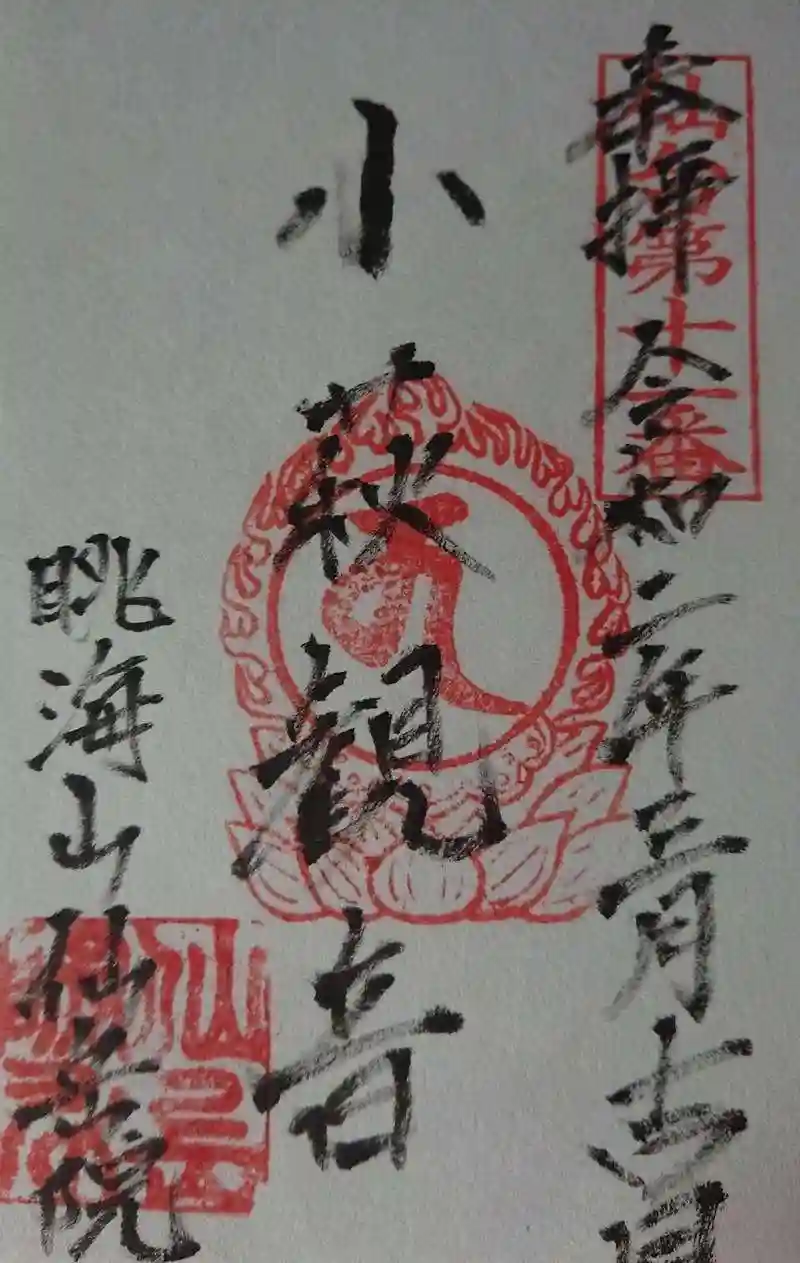 仙台第十一番
奉拝 令和二年三月吉日
小萩観音
眺海山仙岳院